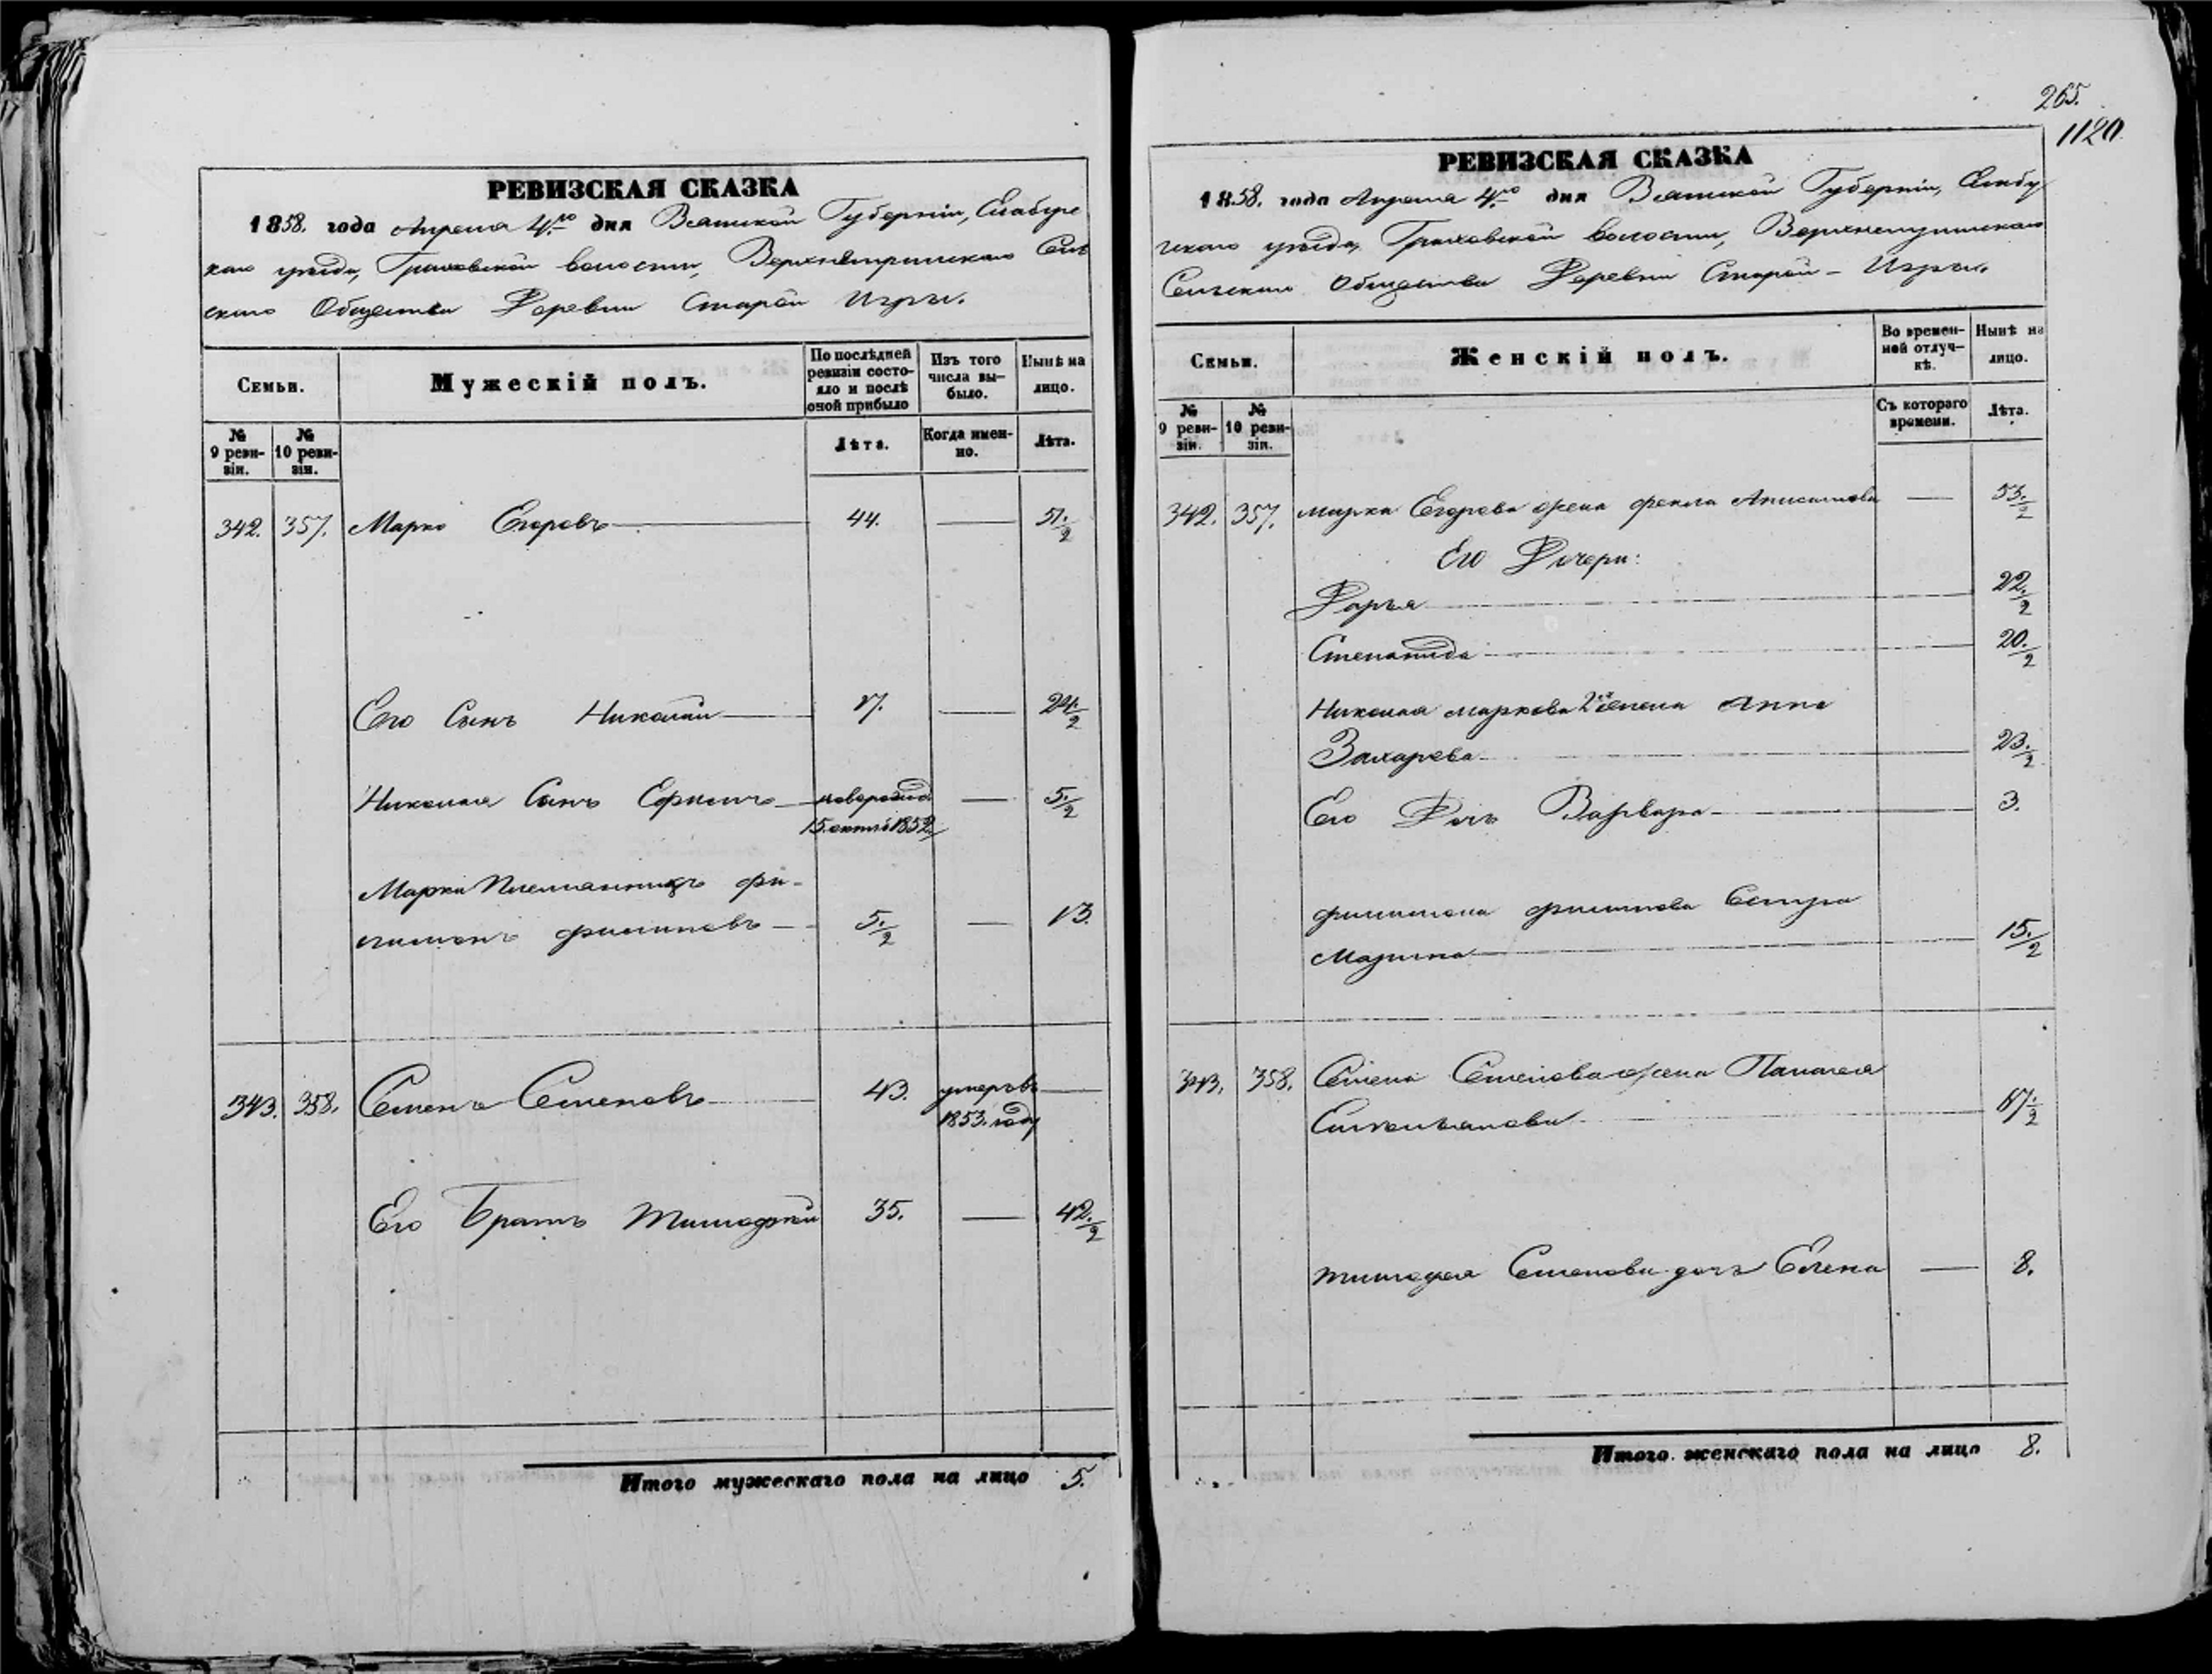 265.
1120.
РЕВИЗСКАЯ СКАЗКА
1858. года Апреля 4го дня Вятской Губерніи, Елабуж
скаго уѣзда, Граховской волости, Сель
скаго Общества Деревни Старой Игры.
Семьи.
Мужескій полъ.
По послѣдней ревизіи состояло и послѣ оной прибыло
Изъ того числа вы-было.
Нынѣ на лицо.
№ 9 реви-зіи.
№ 10 реви-зіи.
Лѣта.
Когда имен-но.
Лѣта.
342. 357. Марко Егоровъ 44. — 51 1/2
Его Сынъ Николай 17. — 24 1/2
Николая Сынъ новорожд. — 5 1/2
15 1852
Марки Племянникъ Фи-
лимонъ Филиповъ 5 1/2 — 13.
343. 358. Семенъ Семеновъ 43. умеръ въ —
1853. году
Его Братъ Тимофей 35. — 42 1/2
Итого мужескаго пола на лицо 5.
РЕВИЗСКАЯ СКАЗКА
1858. года Апреля 4го дня Вятской Губерніи, Елабу
жскаго уѣзда, Граховской волости,
Сельскаго Общества Деревни Старой-Игры.
Семьи.
Женскій полъ.
Во времен-ной отлуч-кѣ.
Нынѣ на лицо.
№ 9 реви-зіи.
№ 10 реви-зіи.
Съ котораго времени.
Лѣта.
342. 357. Марка Егорова жена Фекла Анисимова — 53 1/2
Его Дочери:
Дарья 22 1/2
Степанида 20 1/2
Николая Маркова 2я жена Анна
Захарова 23 1/2
Его Дочь Варвара 3.
Филимона Филипова Сестра
Марина 15 1/2
343. 358. Семена Семенова жена Палагея
Емельянова 1/2
Тимофея Семенова дочь Елена — 8.
Итого женскаго пола на лицо 8.